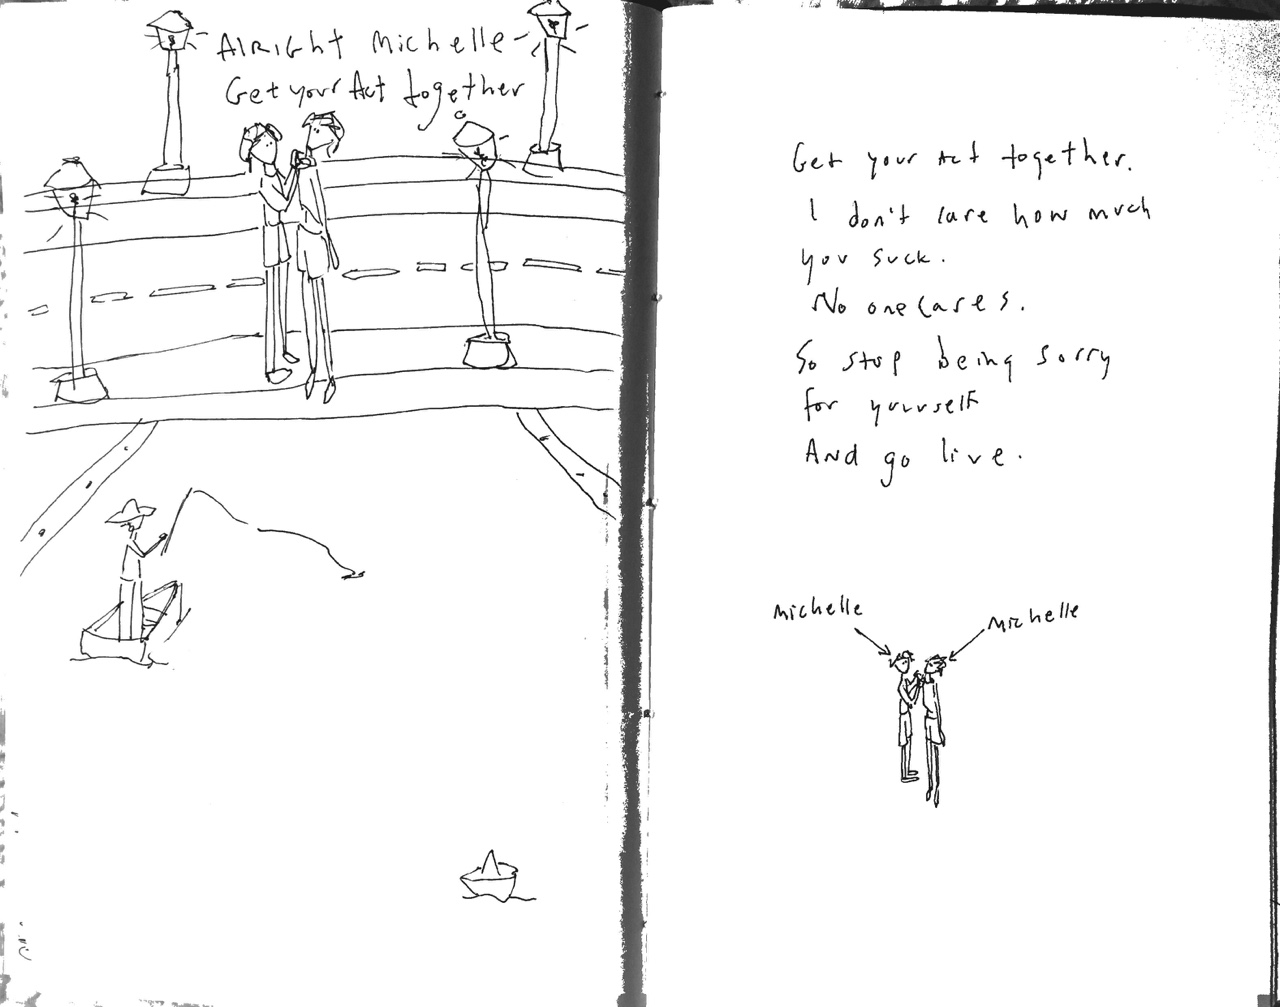 Alright Michelle-
Get your Act together
Get your Act together.
I don't care how much
you suck.
No one cares.
So stop being sorry
for yourself
And go live.
Michelle
Michelle